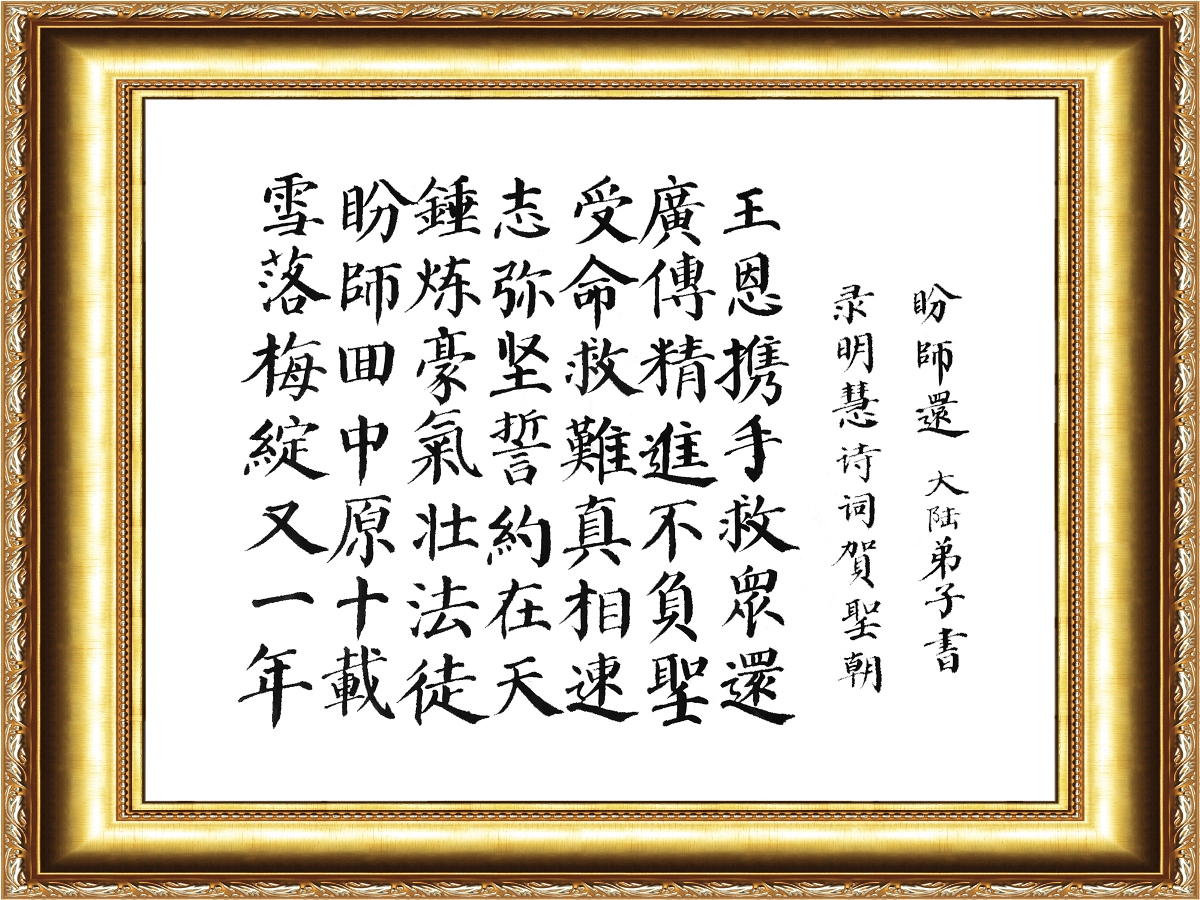 雪落梅綻又一年
盼師囬中原十載
錘炼豪氣壮法徒
志弥坚誓約在天
受命救難真相速
廣傳精進不負聖
王恩携手救眾還
录明慧诗词賀聖朝
盼師還 大陆弟子書